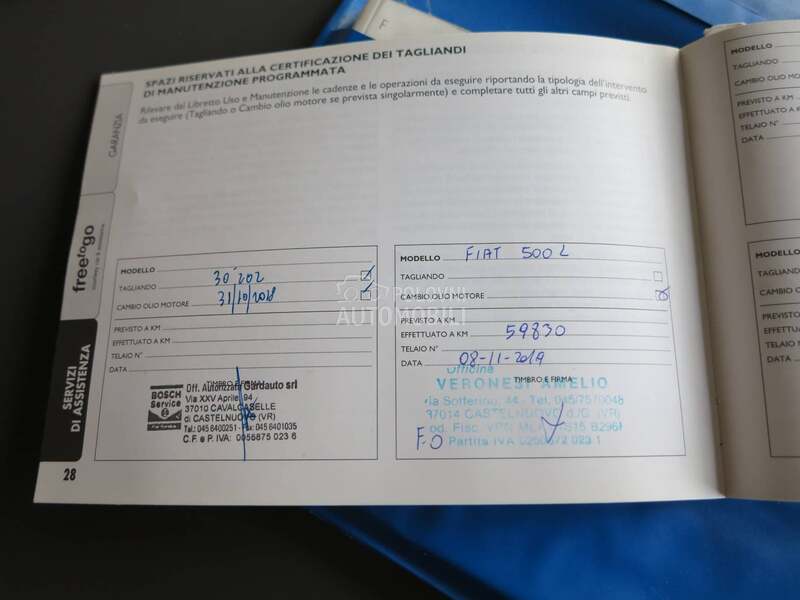 SPAZI RISERVATI ALLA CERTIFICAZIONE DEI TAGLIANDI
DI MANUTENZIONE PROGRAMMATA
Rilevare dal Libretto Uso e Manutenzione le cadenze e le operazioni da eseguire riportando la tipologia dell'intervento
da eseguire (Tagliando o Cambio olio motore se prevista singolarmente) e completare tutti gli altri campi previsti.
GARANZIA
freetogo
SERVIZI
DI ASSISTENZA
MODELLO
TAGLIANDO 30.202
CAMBIO OLIO MOTORE 31/10/2018
PREVISTO A KM
EFFETTUATO A KM
TELAIO N°
DATA
TIMBRO E FIRMA
BOSCH
Service
Off. Autorizzata Gardauto srl
Via XXV Aprile, 94
37010 CAVALCASELLE
di CASTELNUOVO (VR)
Tel.: 045 6400251 - Fax: 045 6401035
C.F. e P. IVA: 0055875 023 6
28
MODELLO FIAT 500 L
TAGLIANDO
CAMBIO OLIO MOTORE
PREVISTO A KM
EFFETTUATO A KM 59830
TELAIO N°
DATA 08-11-2019
TIMBRO E FIRMA
Officina
VERONESI AMELIO
Via Solferino, 44 - Tel. 045/7570048
37014 CASTELNUOVO d/G (VR)
F.O
Partita IVA
POLOVNI
AUTOMOBILI
MODELLO
TAGLIANDO
CAMBIO OLIO
PREVISTO A KM
EFFETTUATO A K
TELAIO N°
DATA
MODELLO
TAGLIANDO
CAMBIO OLIO
PREVISTO A KM
EFFETTUATO A
TELAIO N°
DATA
F